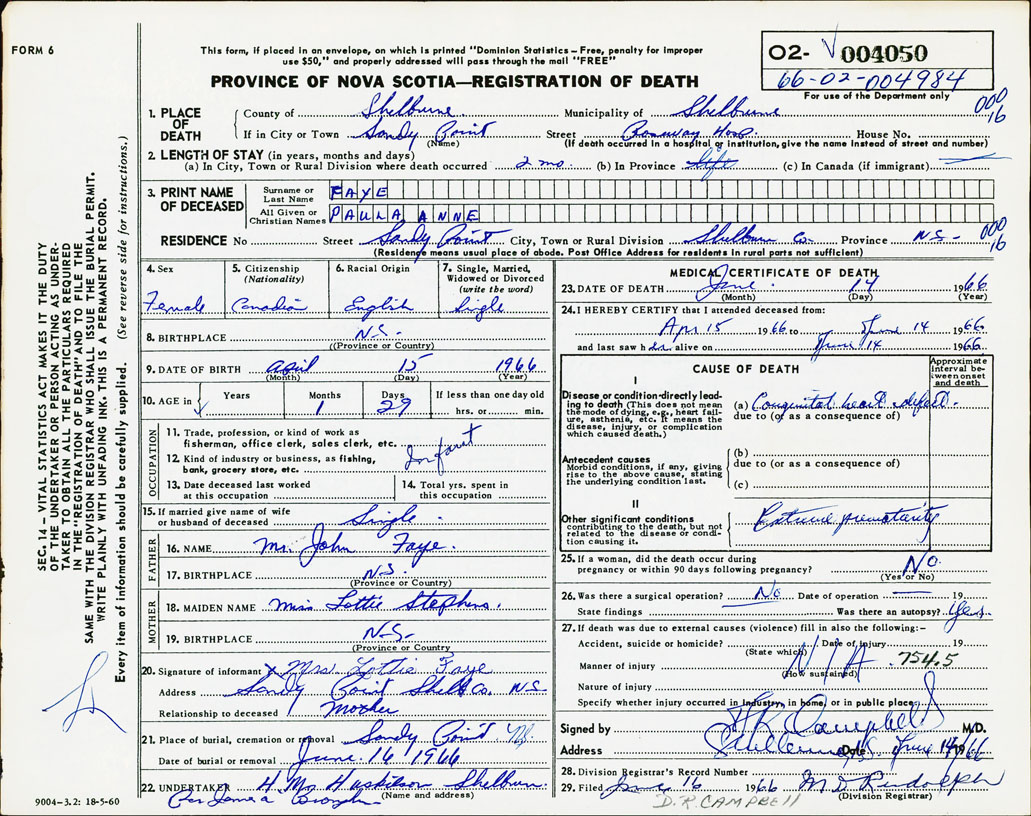 FORM 6
This form, if placed in an envelope, on which is printed "Dominion Statistics – Free, penalty for improper
use $50," and properly addressed will pass through the mail "FREE"
PROVINCE OF NOVA SCOTIA—REGISTRATION OF DEATH
O2- 004050
66-02-004984
For use of the Department only
1. PLACE OF DEATH
County of Shelburne Municipality of Shelburne 000 16
If in City or Town Sandy Point Street Roseway Hosp. House No.
(Name) (If death occurred in a hospital or institution, give the name instead of street and number)
2. LENGTH OF STAY (in years, months and days)
(a) In City, Town or Rural Division where death occurred 2 mo. (b) In Province Life (c) In Canada (if immigrant)
3. PRINT NAME OF DECEASED
Surname or Last Name FAYE
All Given or Christian Names PAULA ANNE
RESIDENCE No Street Sandy Point City, Town or Rural Division Shelburn Co. Province N.S. 000 16
(Residence means usual place of abode. Post Office Address for residents in rural parts not sufficient)
4. Sex Female
5. Citizenship (Nationality) Canadian
6. Racial Origin English
7. Single, Married, Widowed or Divorced (write the word) Single
8. BIRTHPLACE N.S.
(Province or Country)
9. DATE OF BIRTH April 15 1966
(Month) (Day) (Year)
10. AGE in Years Months 1 Days 29 If less than one day old hrs. or min.
OCCUPATION
11. Trade, profession, or kind of work as
fisherman, office clerk, sales clerk, etc. Infant
12. Kind of industry or business, as fishing,
bank, grocery store, etc.
13. Date deceased last worked
at this occupation
14. Total yrs. spent in
this occupation
15. If married give name of wife
or husband of deceased Single
FATHER
16. NAME Mr. John Faye.
17. BIRTHPLACE N.S.
(Province or Country)
MOTHER
18. MAIDEN NAME Miss Lottie Stephens.
19. BIRTHPLACE N.S.
(Province or Country
20. Signature of informant x Mrs Lottie Faye
Address Sandy Point Shel Co. N.S.
Relationship to deceased Mother
21. Place of burial, cremation or removal Sandy Point N.S.
Date of burial or removal June. 16, 1966
22. UNDERTAKER H. M. Huskilson Shelburn.
(Name and address)
Per
9004-3.2: 18-5-60
MEDICAL CERTIFICATE OF DEATH
23. DATE OF DEATH June 14 1966
(Month) (Day) (Year)
24. I HEREBY CERTIFY that I attended deceased from:
Apr 15 1966 to June 14 1966
and last saw her alive on June 14 1966
CAUSE OF DEATH
Approximate interval between onset and death
I
Disease or condition directly leading to death (This does not mean
the mode of dying, e.g., heart failure, asthenia, etc. It means the
disease, injury, or complication
which caused death.)
(a) Congenital heart defect.
due to (or as a consequence of)
Antecedent causes
Morbid conditions, if any, giving
rise to the above cause, stating
the underlying condition last.
(b)
due to (or as a consequence of)
(c)
II
Other significant conditions
contributing to the death, but not
related to the disease or condition causing it.
Extreme prematurity
25. If a woman, did the death occur during
pregnancy or within 90 days following pregnancy? No.
(Yes or No)
26. Was there a surgical operation? No Date of operation 19
State findings Was there an autopsy? Yes.
27. If death was due to external causes (violence) fill in also the following:–
Accident, suicide or homicide? Date of injury 19
(State which)
Manner of injury N/A 754.5
(How sustained)
Nature of injury
Specify whether injury occurred in industry, in home, or in public place
Signed by Campbell M/D.
Address Date June 14 1966
28. Division Registrar's Record Number
29. Filed June 16 1966 M D Rudolph
(Division Registrar)
D.R. CAMPBELL
SEC. 14 – VITAL STATISTICS ACT MAKES IT THE DUTY
OF THE UNDERTAKER OR PERSON ACTING AS UNDERTAKER TO OBTAIN ALL THE PARTICULARS REQUIRED
IN THE "REGISTRATION OF DEATH" AND TO FILE THE
SAME WITH THE DIVISION REGISTRAR WHO SHALL ISSUE THE BURIAL PERMIT.
WRITE PLAINLY WITH UNFADING INK. THIS IS A PERMANENT RECORD.
Every item of information should be carefully supplied. (See reverse side for instructions.)